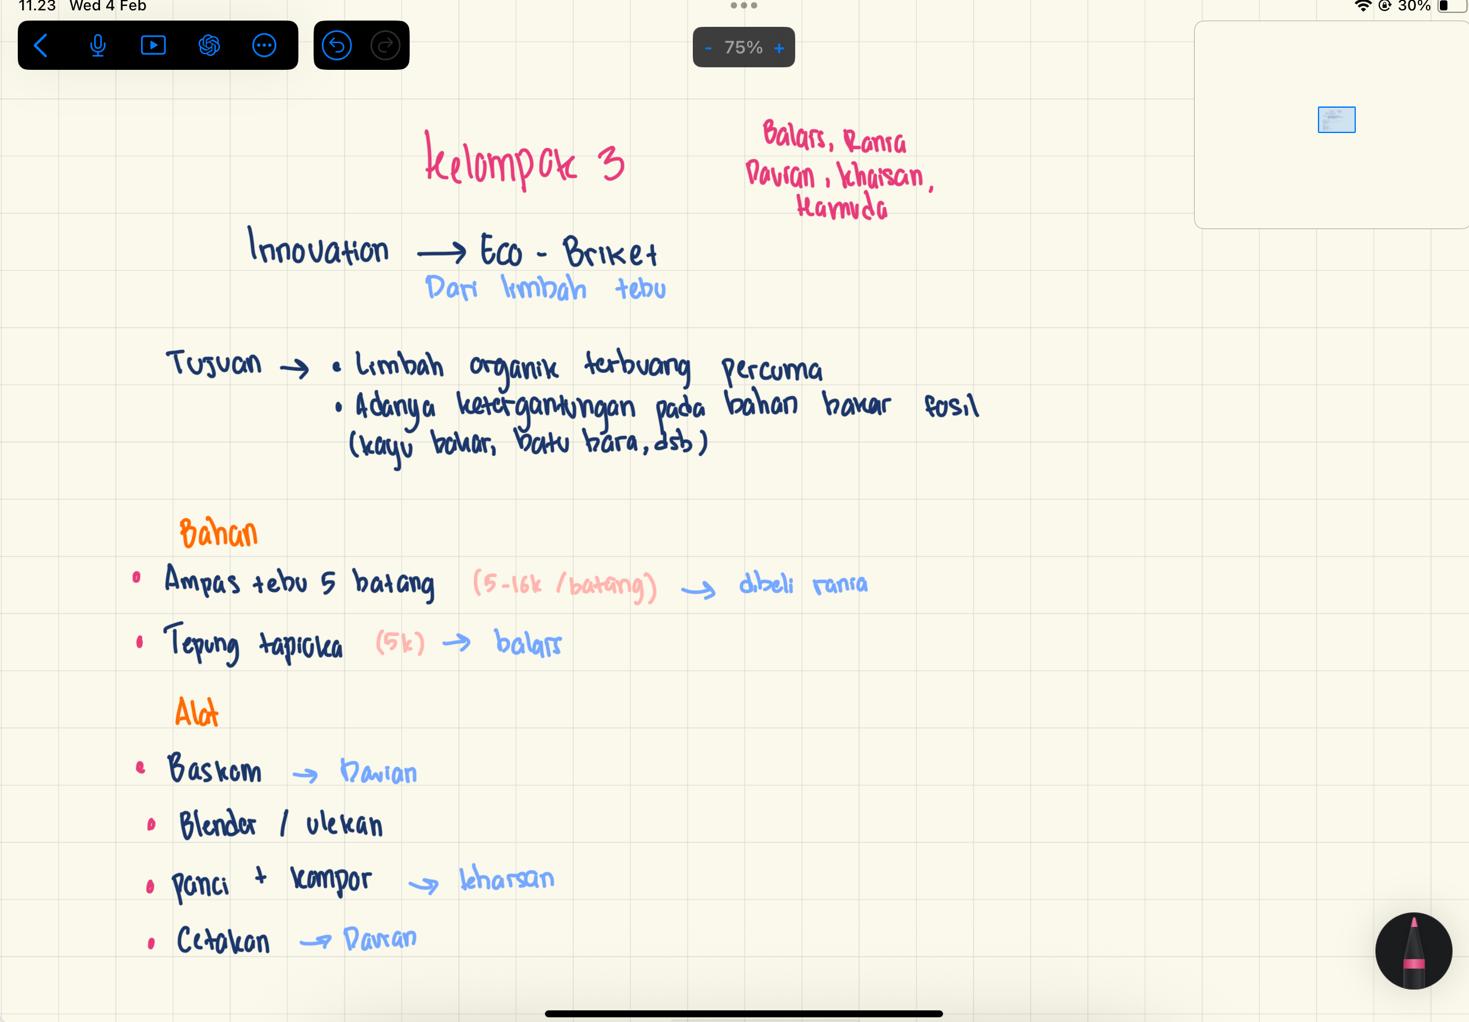 11.23 Wed 4 Feb
30%
- 75% +
Kelompok 3
Balqis, Rania
Davian, Khaisan,
Hamuda
Innovation → Eco - Briket
Dari limbah tebu
Tujuan → • Limbah organik terbuang percuma
• Adanya ketergantungan pada bahan bakar fosil
(kayu bakar, batu bara, dsb)
Bahan
• Ampas tebu 5 batang (5-16k /batang) → dibeli rania
• Tepung tapioka (5k) → balqis
Alat
• Baskom → Davian
• Blender / ulekan
• panci + kompor → khaisan
• Cetakan → Davian